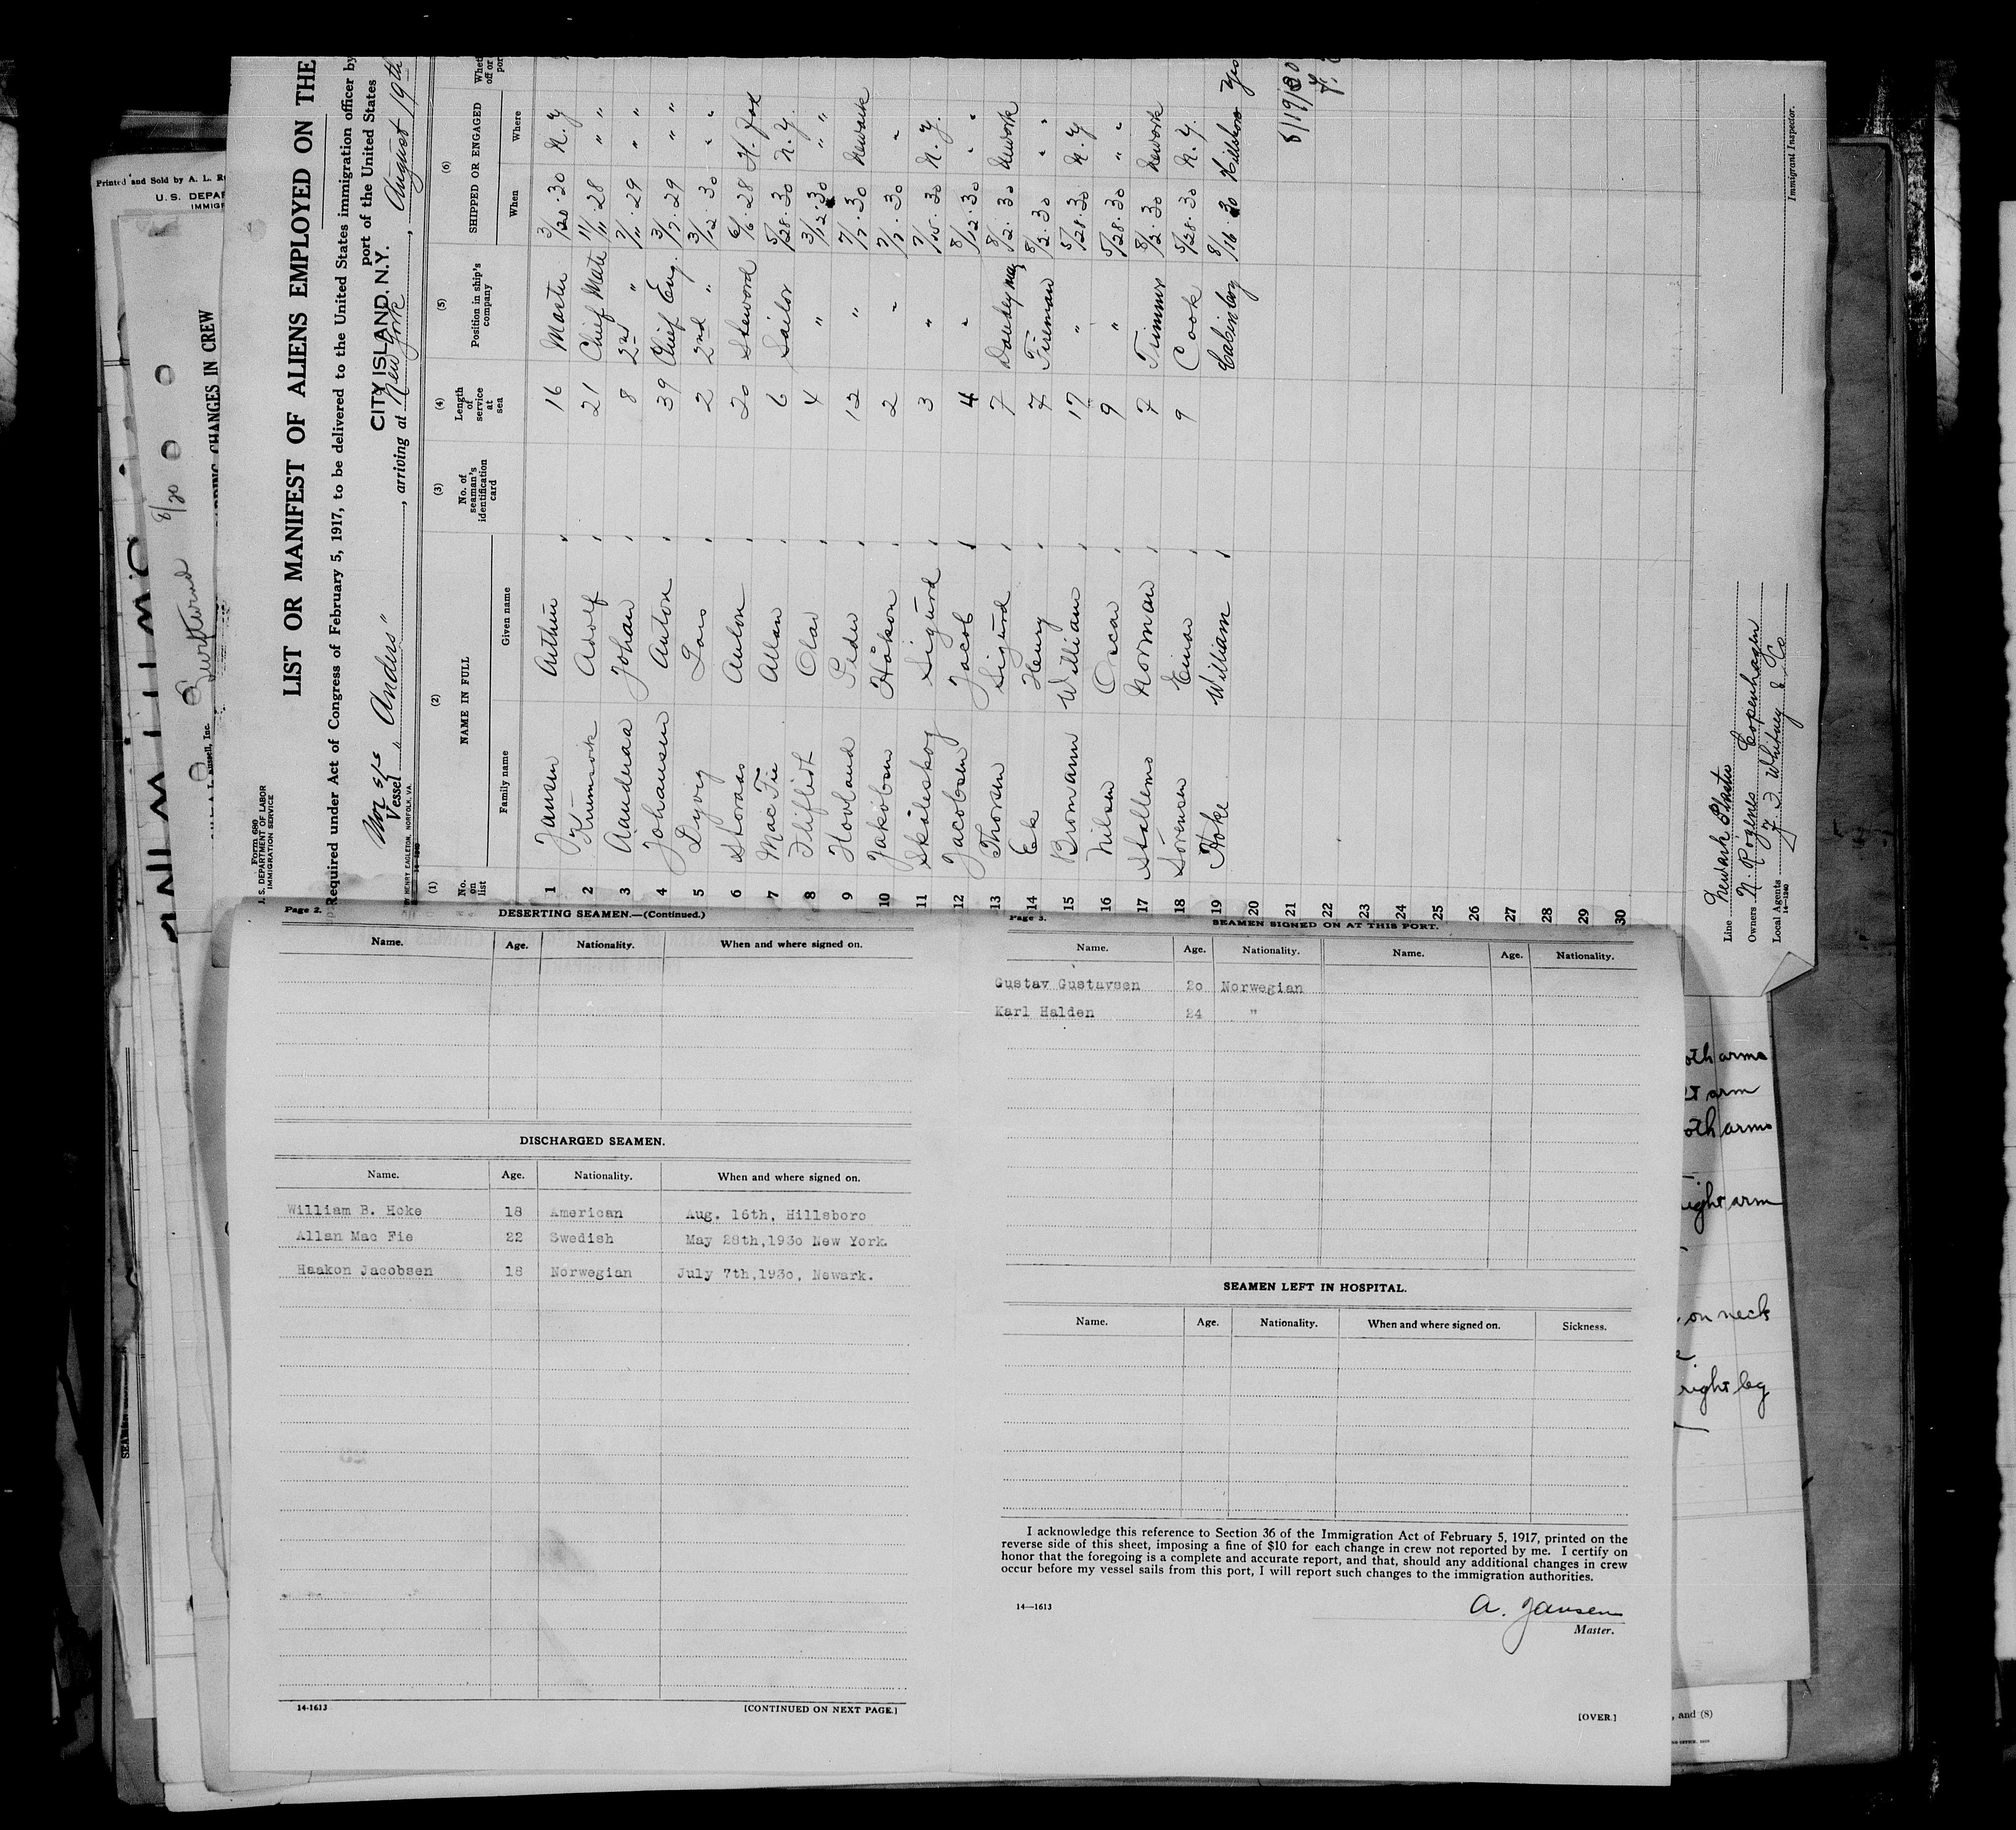 Form 680
U. S. DEPARTMENT OF LABOR
IMMIGRATION SERVICE
LIST OR MANIFEST OF ALIENS EMPLOYED ON THE
Required under Act of Congress of February 5, 1917, to be delivered to the United States immigration officer by
port of the United States
CITY ISLAND, N.Y.
Nor S/S
Vessel "Anders", arriving at New York, August 19th
BY HENRY EAGLETON, NORFOLK, VA.
(1) (2) (3) (4) (5) (6)
No. on list NAME IN FULL No. of seaman's identification card Length of service at sea Position in ship's company SHIPPED OR ENGAGED
Family name Given name When Where
1 Jansen Arthur 16 Master 3/20·30 N.Y
2 Adolf 21 Chief Mate 11/11·28 " "
3 Aanderaa Johan 8 2nd " 7/11·29 " "
4 Johansen Anton 39 Chief Eng. 3/7·29 " "
5 Dyvig Lars 2 2nd " 3/12·30 " "
6 Storaas Anton 20 Steword 6/6·28
7 Mac Fie Allan 6 Sailor 5/28·30 N.Y.
8 Olav 4 " 3/12·30 " "
9 Hovland Peder 12 " 7/7·30 Newark
10 Jakobsen Håkon 2 " 7/7·30 "
11 Skåleskog Sigurd 3 " 7/15·30 N.Y.
12 Jacobsen Jacob 4 " 8/12·30 "
13 Thorsen Sigurd 7 Donkeyman 8/2·30 Newark
14 Ek Henry 7 Fireman 8/2·30 "
15 Bromann William 17 " 5/28·30 N.Y
16 Nilsen Oscar 9 " 5/28·30 " "
17 Stallemo Norman 7 Trimmer 8/2·30 Newark
18 Sörensen Einar 9 Cook 5/28·30 N.Y.
19 Hoke William Cabinboy 8/16·30 Hillsboro Yes
20
21
22
23
24
25
26
27
28
29
30
8/19/30
Immigrant Inspector.
Line Newark Plaster
Owners N. Rögenes Copenhagen
Local Agents J. F. Whitney & Co
14—1240
Printed and Sold by A. L.
U. S. DEPAR
IMMIGR
8/20
CHANGES IN CREW
Page 2.
DESERTING SEAMEN.—(Continued.)
Name. Age. Nationality. When and where signed on.
DISCHARGED SEAMEN.
Name. Age. Nationality. When and where signed on.
William B. Hoke 18 American Aug. 16th, Hillsboro
Allan Mac Fie 22 Swedish May 28th,1930 New York.
Haakon Jacobsen 18 Norwegian July 7th,1930, Newark.
14-1613
[CONTINUED ON NEXT PAGE.]
Page 3.
SEAMEN SIGNED ON AT THIS PORT.
Name. Age. Nationality. Name. Age. Nationality.
Gustav Gustavsen 20 Norwegian
Karl Halden 24 "
SEAMEN LEFT IN HOSPITAL.
Name. Age. Nationality. When and where signed on. Sickness.
I acknowledge this reference to Section 36 of the Immigration Act of February 5, 1917, printed on the
reverse side of this sheet, imposing a fine of $10 for each change in crew not reported by me. I certify on
honor that the foregoing is a complete and accurate report, and that, should any additional changes in crew
occur before my vessel sails from this port, I will report such changes to the immigration authorities.
14—1613
A. Jansen
Master.
[OVER.]
oth arms
arm
oth arms
ight arm
on neck
right leg
, and (8)